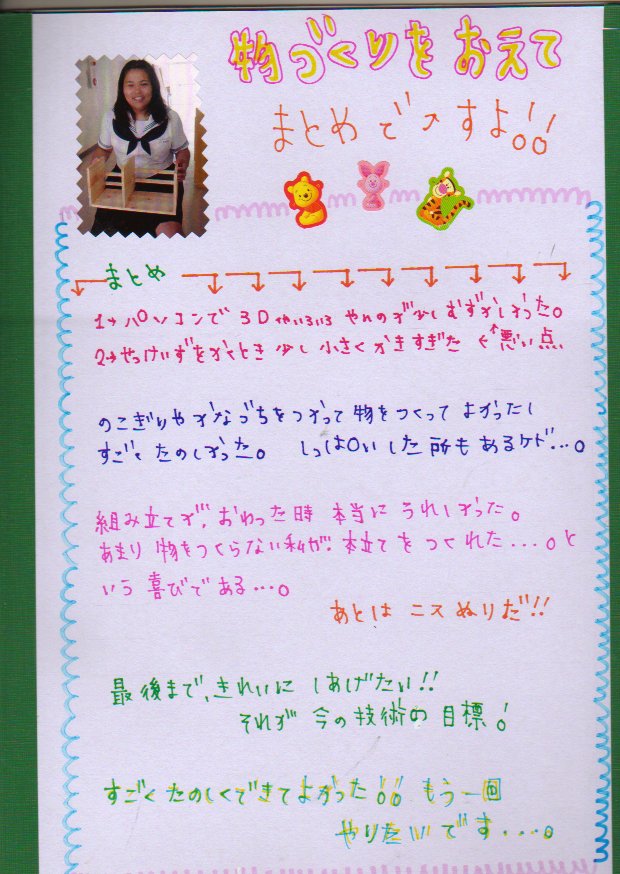 物づくりをおえて
まとめでへすよ!!
まとめ
1→パソコンで 3Dやいろいろ やんのが少しむずかしかった。
2→せっけいずをかくとき 少し小さくかきすぎた ←悪い点
のこぎりやかなづちをつかって物をつくってよかったし
すごくたのしかった。 しっぱいした所もあるケド…。
組み立てが、おわった時 本当にうれしかった。
あまり物をつくらない私が、本立てをつくれた…。と
いう喜びである…。
あとは ニスぬりだ!!
最後まで、きれいに しあげたい!!
それが 今の技術の目標!
すごくたのしくできてよかった!! もう一回
やりたいです....。